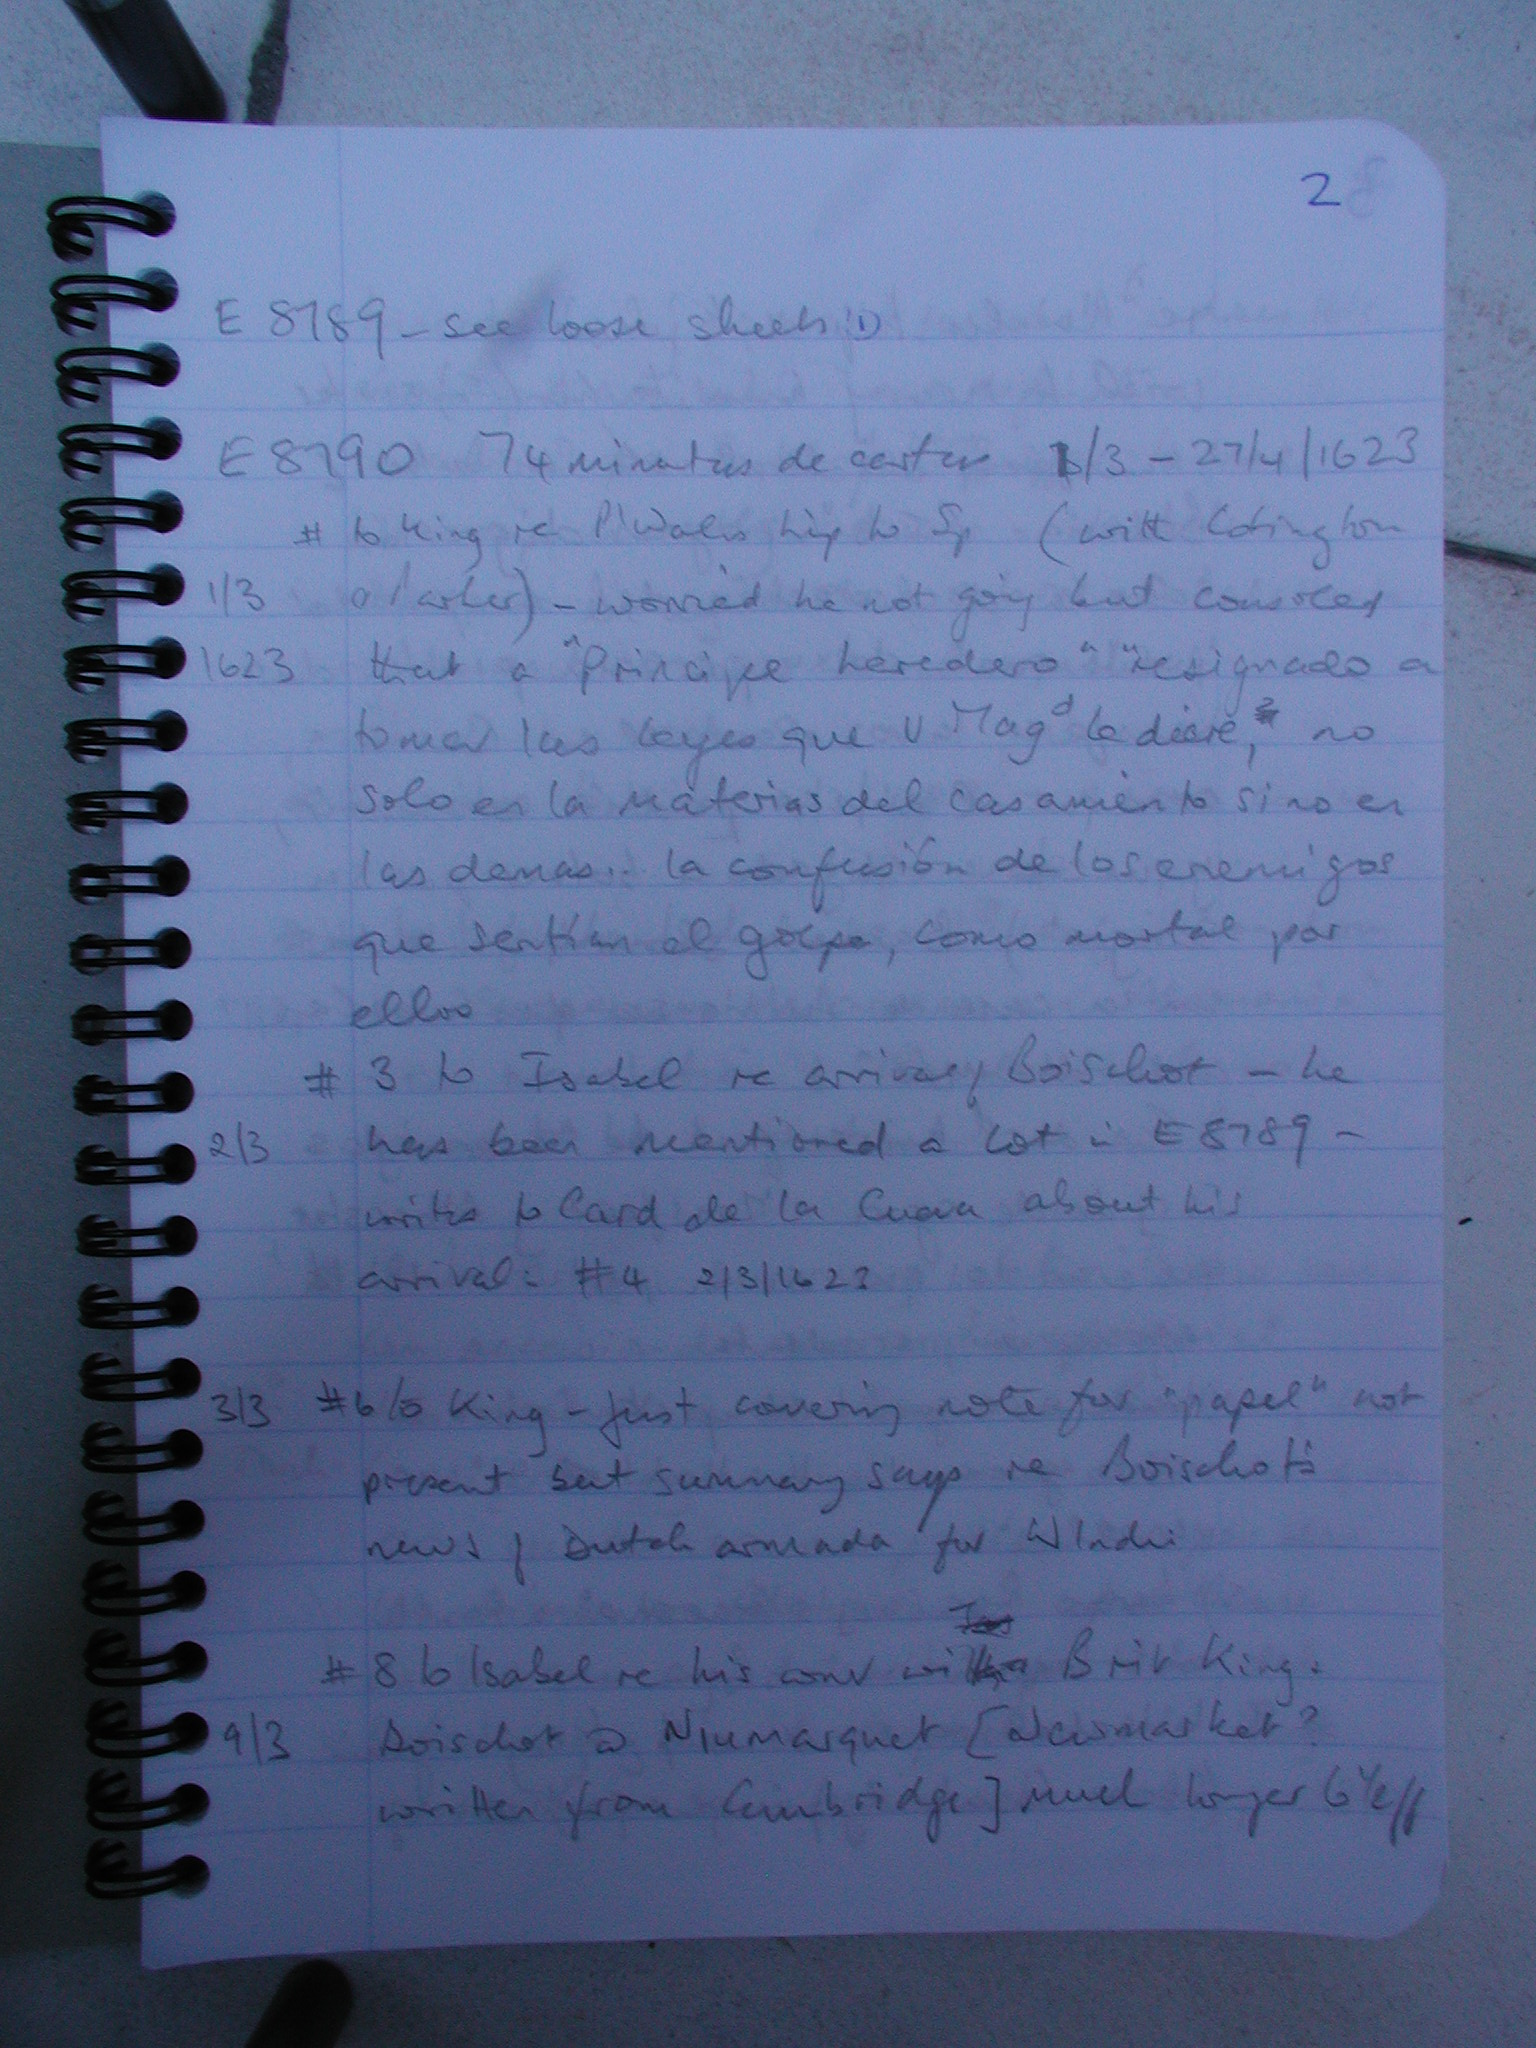 2
E 8789 - see loose sheets (1)
E 8790 74 minutas de cartas 1/3 - 27/4/1623
# to King re P/Wales trip to Sp (with Cotington
1/3 o/ - worried he not going but consoled
1623 that a "Principe heredero" "resignado a
tomar las leyes que V Magd le diere, no
solo en la materias del casamiento sino en
las demas... la confusión de los enemigos
que sentian el golpe, como mortal por
ellos
# 3 to Isabel re arrival / Boischot - he
2/3 has been mentioned a lot in E 8789 -
writes to Card de la Cueva about his
arrival: #4 2/3/1623
3/3 #6 to King - just covering note for "papel" not
present but summary says re Boischot's
news / Dutch armada for W Indi
# 8 to Isabel re his conv with Brit King.
9/3 Boischot @ Niumarquet [Newmarket?
written from Cambridge] much longer